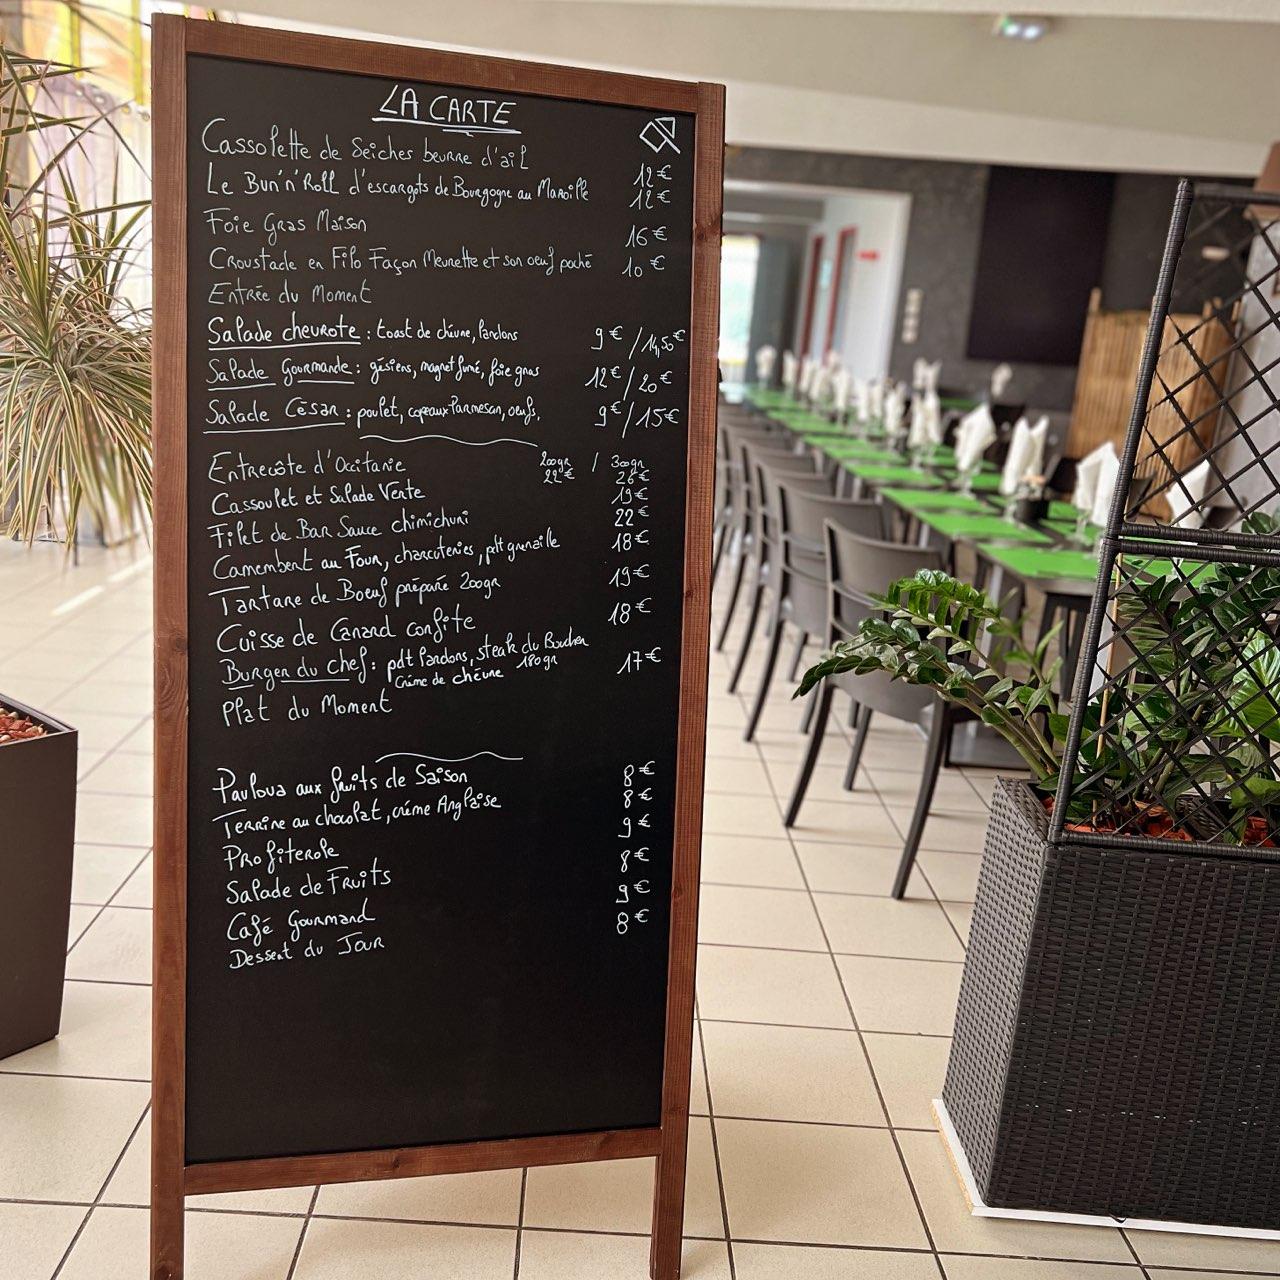 LA CARTE
Cassolette de Seiches beurre d'ail 12€
Le Bun'n'Roll d'escargots de Bourgogne au Maroille 12€
Foie Gras Maison 16€
Croustade en Filo Façon Meurette et son oeuf poché 10€
Entrée du Moment
Salade chevrote : toast de chèvre, lardons 9€ / 14,50€
Salade Gourmande : gésiers, magret fumé, foie gras 12€ / 20€
Salade César : poulet, copeaux Parmesan, oeufs. 9€ / 15€
Entrecôte d'Occitanie 200gr 22€ / 300gr 26€
Cassoulet et Salade Verte 19€
Filet de Bar Sauce chimichuri 22€
Camembert au Four, charcuteries, pdt grenaille 18€
Tartare de Boeuf préparé 200gr 19€
Cuisse de Canard confite 18€
Burger du chef : pdt lardons, steak du Boucher 17€
Crème de chèvre 180gr
Plat du Moment
Pavlova aux fruits de Saison 8€
Terrine au chocolat, crème Anglaise 8€
Profiterole 9€
Salade de Fruits 8€
Café Gourmand 9€
Dessert du Jour 8€